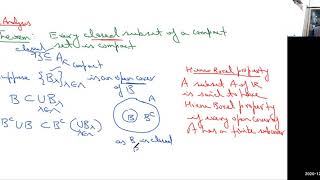 Analysis
Theorem: Every closed subset of a compact
set is compact
closed B ⊆ A compact
Suppose {Bλ}λ∈Λ is an open cover
of B
B ⊂ ∪Bλ
λ∈Λ
A
B
Bᶜ
Bᶜ ∪ B ⊂ Bᶜ ∪ (∪Bλ)
λ∈Λ
as B is closed
Heine Borel property
A subset A of R
is said to have
Heine Borel property
if every open covering
A has a finite subcover